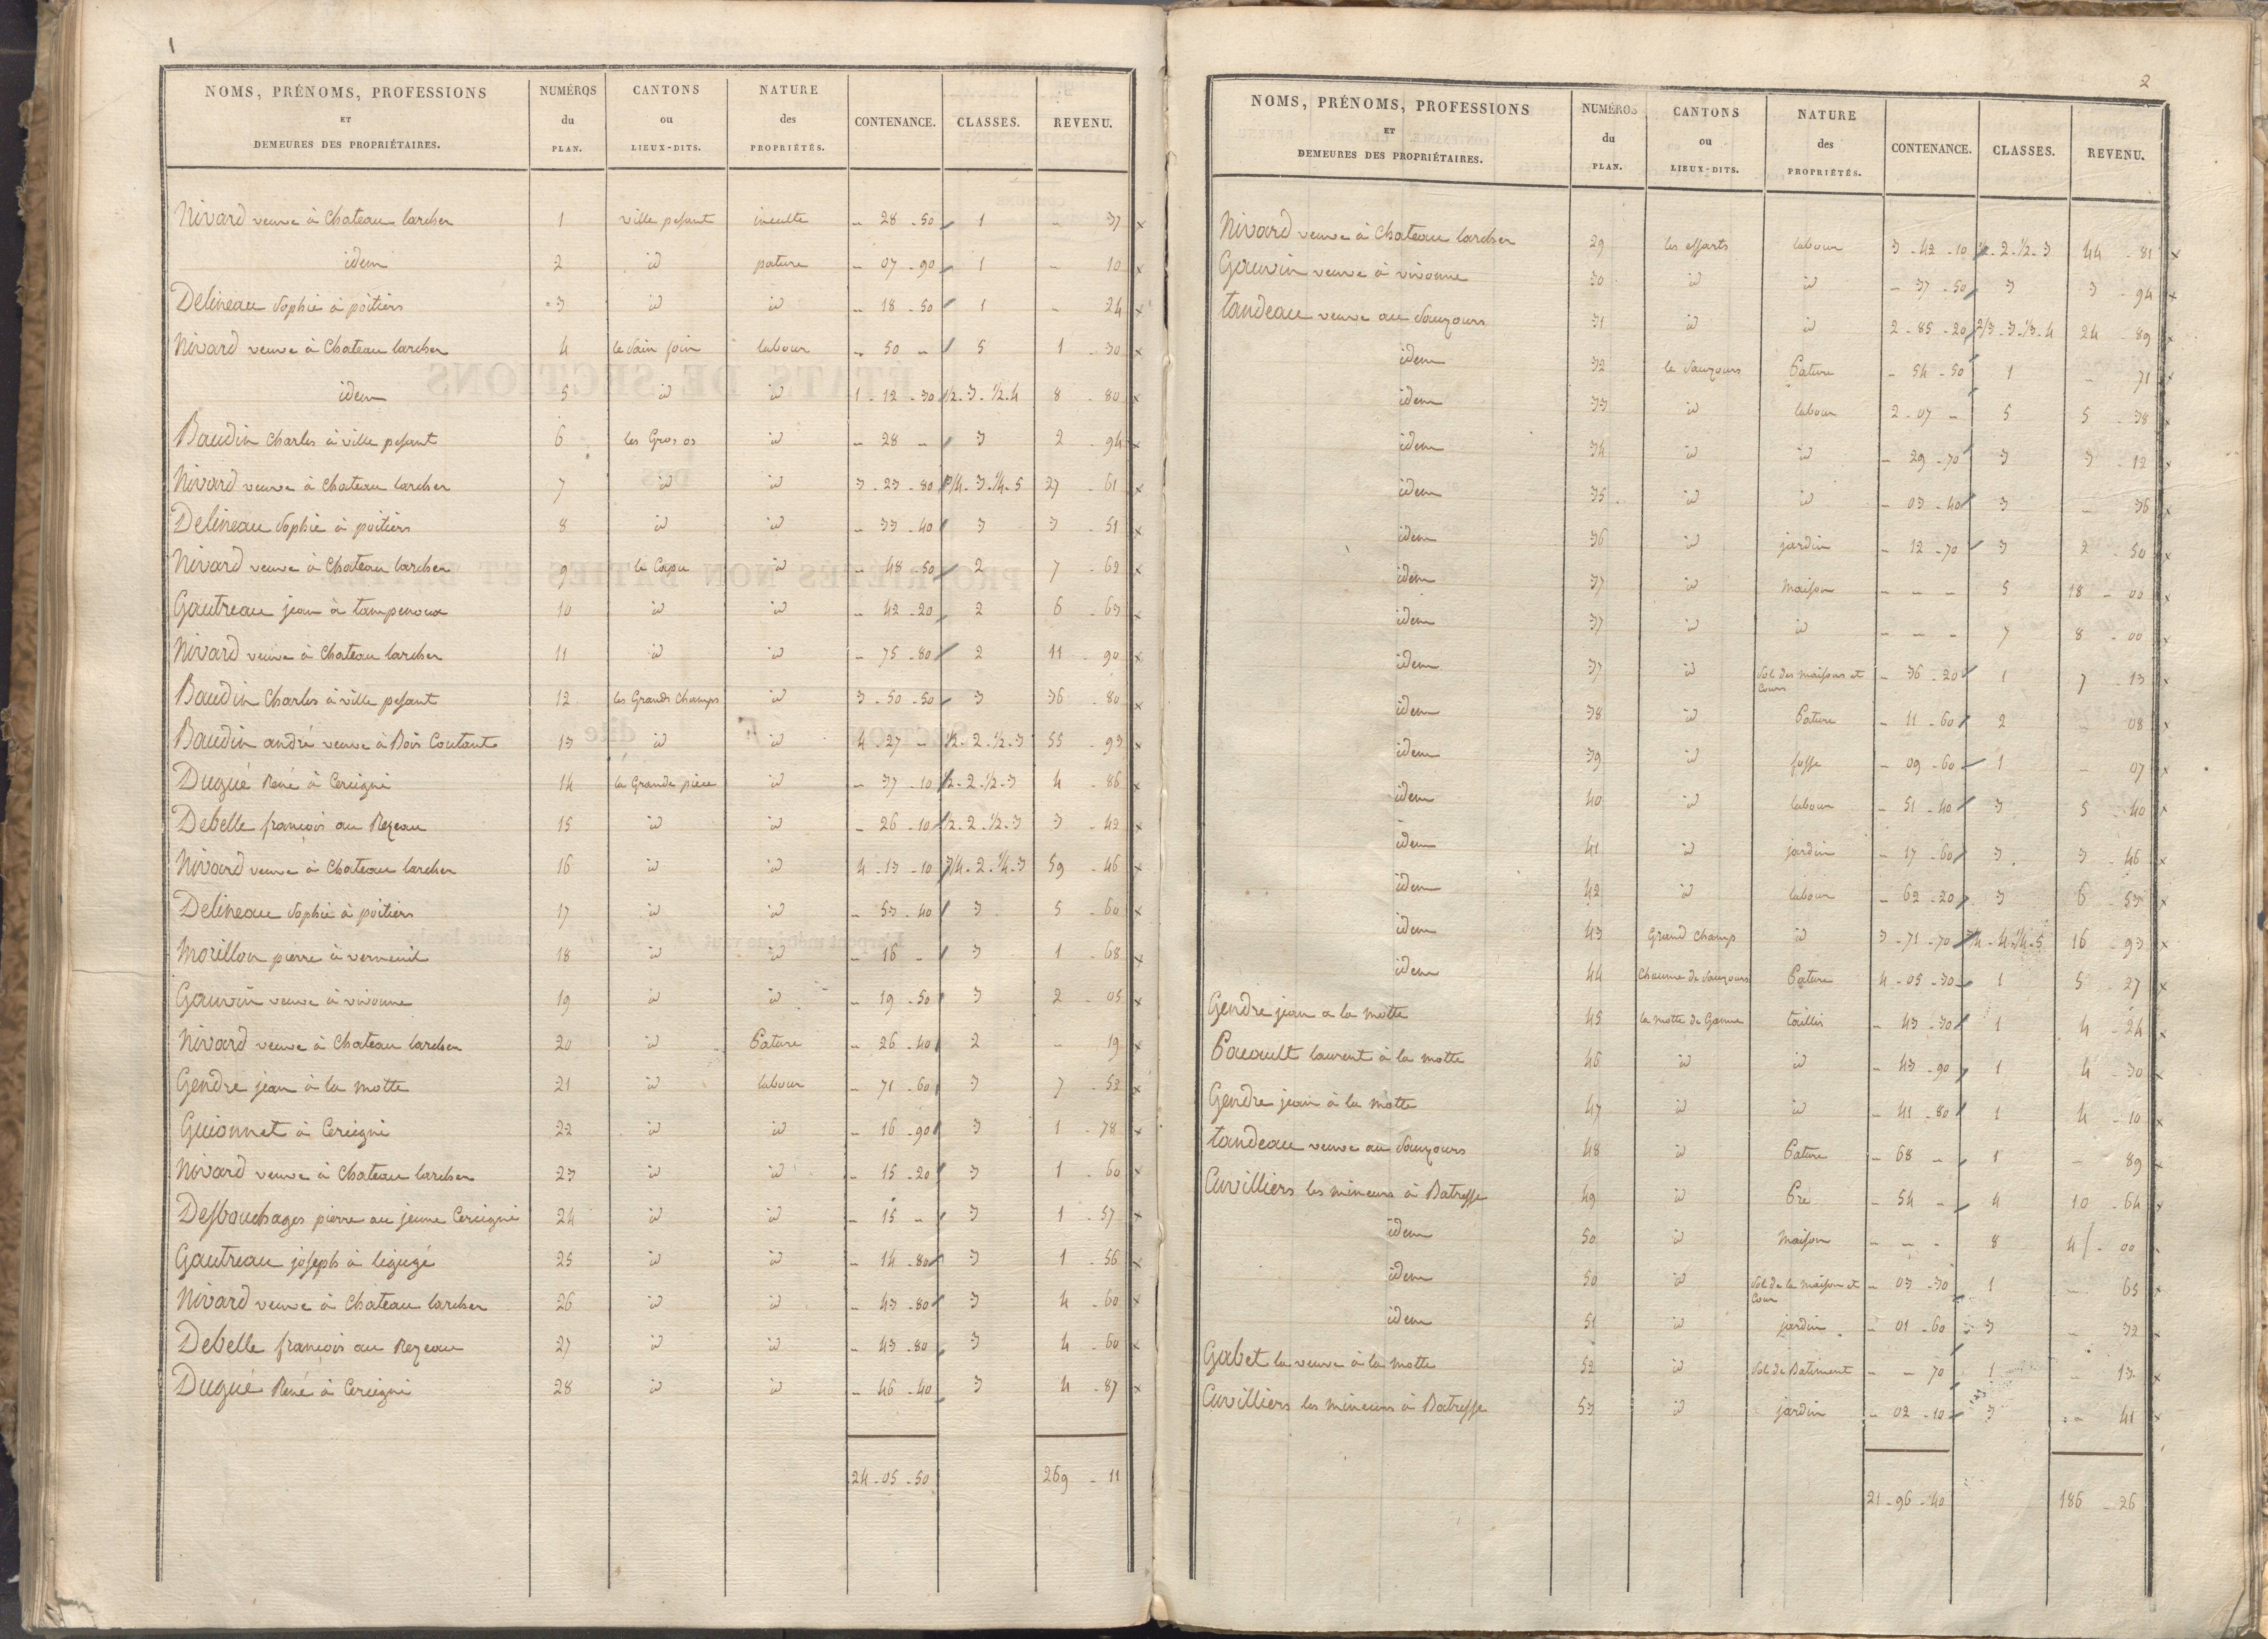 1
NOMS, PRÉNOMS, PROFESSIONS ET DEMEURES DES PROPRIÉTAIRES. NUMÉROS du PLAN. CANTONS ou LIEUX-DITS. NATURE des PROPRIÉTÉS. CONTENANCE. CLASSES. REVENU.
Nivard veuve à Chateau larcher 1 ville pesant inculte - 28 - 50 1 - 37 x
idem 2 id pature - 07 - 90 1 - 10 x
Delineau Sophie à poitiers 3 id id - 18 - 50 1 - 24 x
Nivard veuve à Chateau larcher 4 le Sain foin labour - 50 - 5 1 - 30 x
idem 5 id id 1 - 12 - 30 1/2. 3. 1/2. 4 8 - 80 x
Baudin Charles à ville pesant 6 les Gros os id - 28 - 3 2 - 94 x
Nivard veuve à Chateau larcher 7 id id 3 - 23 - 80 3/4. 3. 1/4. 5 27 - 61 x
Delineau Sophie à poitiers 8 id id - 33 - 40 3 3 - 51 x
Nivard veuve à Chateau larcher 9 le Capu id - 48 - 50 2 7 - 62 x
Gautreau jean à tampenoux 10 id id - 42 - 20 2 6 - 63 x
Nivard veuve à Chateau larcher 11 id id - 75 - 80 2 11 - 90 x
Baudin Charles à ville pesant 12 les Grands Champs id 3 - 50 - 50 3 36 - 80 x
Baudin andré veuve à Bois Coutant 13 id id 4 - 27 - 1/2. 2. 1/2. 3 55 - 93 x
Dugué René à Cercigni 14 la Grande pièce id - 37 - 10 1/2. 2. 1/2. 3 4 - 86 x
Debelle françois au Rezeau 15 id id - 26 - 10 1/2. 2. 1/2. 3 3 - 42 x
Nivard veuve à Chateau larcher 16 id id 4 - 13 - 10 3/4. 2. 1/4. 3 59 - 46 x
Delineau Sophie à poitiers 17 id id - 53 - 40 3 5 - 60 x
Morillon pierre à verneuil 18 id id - 16 - 3 1 - 68 x
Gauvin veuve à vivonne 19 id id - 19 - 50 3 2 - 05 x
Nivard veuve à Chateau larcher 20 id Pature - 26 - 40 2 - 19 x
Gendre jean à la motte 21 id labour - 71 - 60 3 7 - 52 x
Guionnet à Cercigni 22 id id - 16 - 90 3 1 - 78 x
Nivard veuve à Chateau larcher 23 id id - 15 - 20 3 1 - 60 x
Desbouchages pierre au jeune Cercigni 24 id id - 15 - 3 1 - 57 x
Gautreau joseph à ligugé 25 id id - 14 - 80 3 1 - 56 x
Nivard veuve à Chateau larcher 26 id id - 43 - 80 3 4 - 60 x
Debelle françois au Rezeau 27 id id - 43 - 80 3 4 - 60 x
Dugué René à Cercigni 28 id id - 46 - 40 3 4 - 87 x
24 - 05 - 50 269 - 11
2
NOMS, PRÉNOMS, PROFESSIONS ET DEMEURES DES PROPRIÉTAIRES. NUMÉROS du PLAN. CANTONS ou LIEUX-DITS. NATURE des PROPRIÉTÉS. CONTENANCE. CLASSES. REVENU.
Nivard veuve à Chateau larcher 29 les essarts labour 3 - 42 - 10 1/2. 2. 1/2. 3 44 - 81 x
Gauvin veuve à vivonne 30 id id - 37 - 50 3 3 - 94 x
tandeau veuve au Sauzours 31 id id 2 - 85 - 20 2/3. 3. 1/3. 4 24 - 89 x
idem 32 le Sauzours Pature - 54 - 50 1 - 71 x
idem 33 id labour 2 - 07 - 5 5 - 38 x
idem 34 id id - 29 - 70 3 3 - 12 x
idem 35 id id - 03 - 40 3 - 36 x
idem 36 id jardin - 12 - 70 3 2 - 50 x
idem 37 id Maison - - - 5 18 - 00 x
idem 37 id id - - - 7 8 - 00 x
idem 37 id Sol des maisons et Cours - 36 - 20 1 7 - 13 x
idem 38 id Pature - 11 - 60 2 - 08 x
idem 39 id fosse - 09 - 60 1 - 07 x
idem 40 id labour - 51 - 40 3 5 - 40 x
idem 41 id jardin - 17 - 60 3 3 - 46 x
idem 42 id labour - 62 - 20 3 6 - 53 x
idem 43 Grand Champ id 3 - 71 - 70 3/4. 4. 1/4. 5 16 - 93 x
idem 44 Chaume de Sauzours Pature 4 - 05 - 30 1 5 - 27 x
Gendre jean a la motte 45 la motte de Ganne taillis - 43 - 30 1 4 - 24 x
Pacault laurent à la motte 46 id id - 43 - 90 1 4 - 30 x
Gendre jean à la motte 47 id id - 41 - 80 1 4 - 10 x
tandeau veuve au Sauzours 48 id Pature - 68 - 1 - 89 x
Cuvilliers les mineurs à Batresse 49 id Pré - 54 - 4 10 - 64 x
idem 50 id Maison - - - 8 4 - 00
idem 50 id Sol de la maison et Cour - 03 - 30 1 - 65 x
idem 51 id jardin - 01 - 60 3 - 32 x
Gabet la veuve à la motte 52 id Sol de Batiment - - 70 1 - 13 x
Cuvilliers les mineurs à Batresse 53 id jardin - 02 - 10 3 - 41 x
21 - 96 - 40 186 - 26